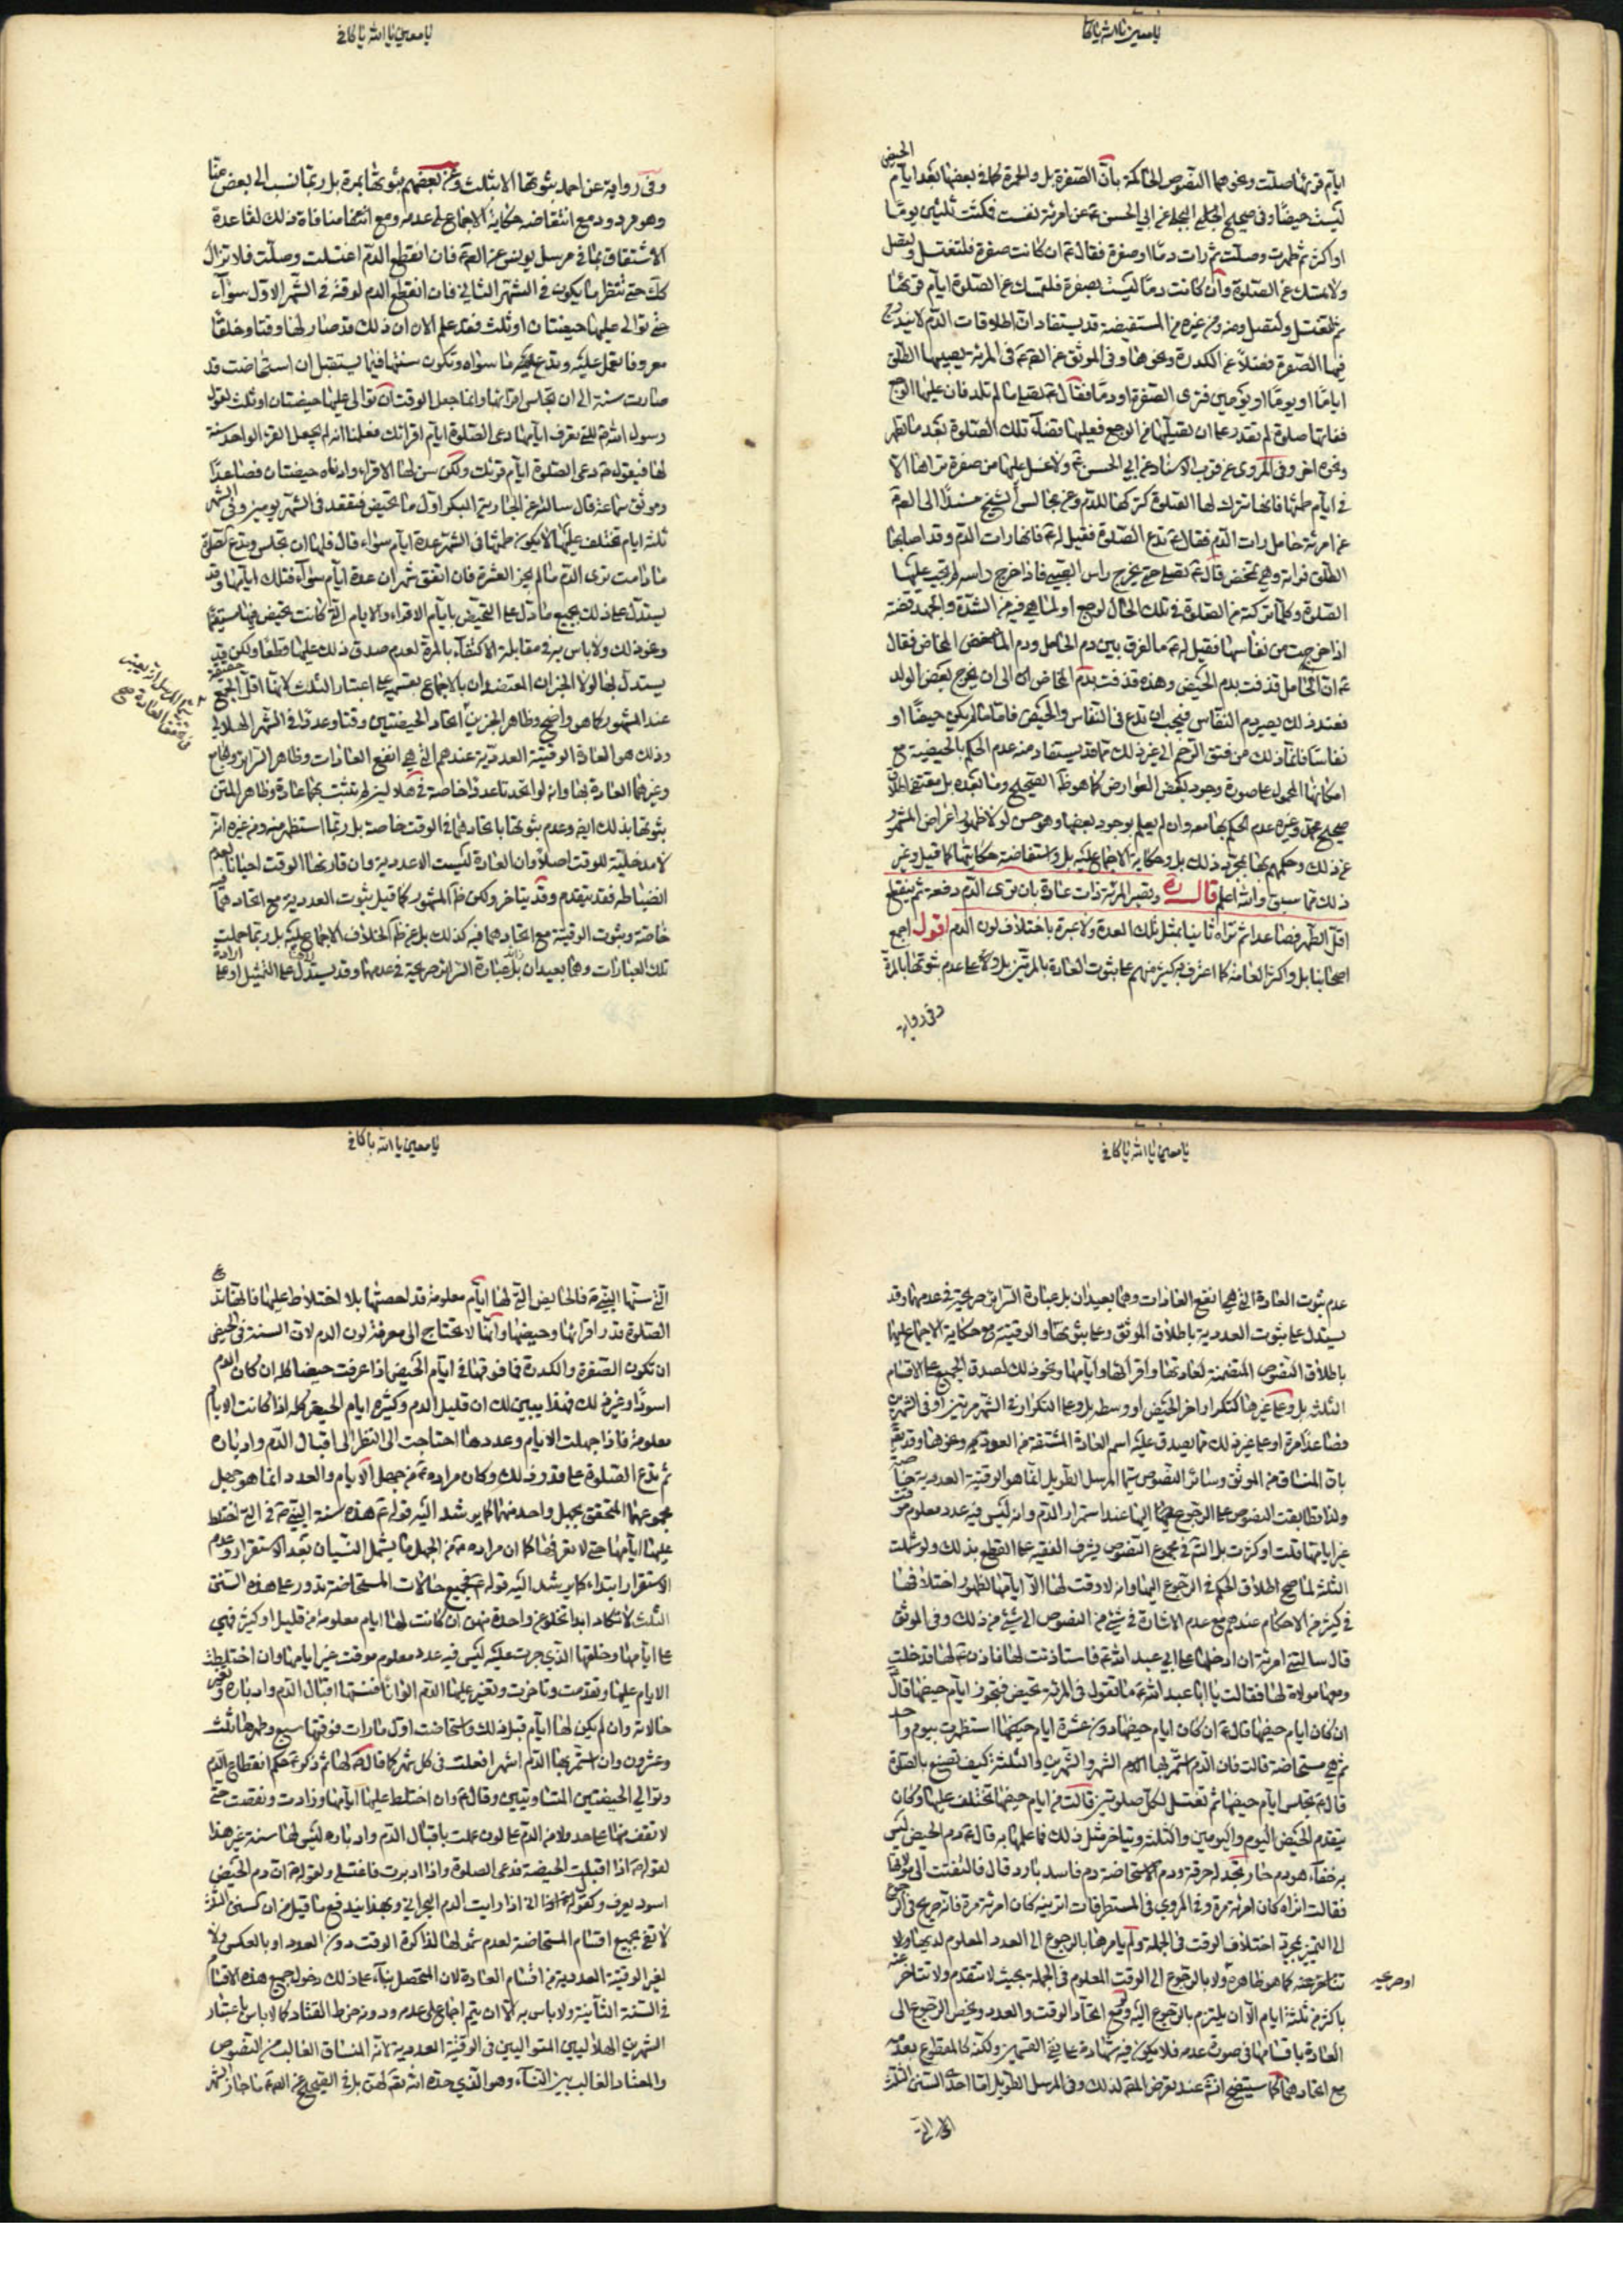 يا معين يا الله يا كافي
ايام قرئها صلت ونحوهما النصوص الحاكمة بان الصفرة بل والحمرة كما في بعضها بعد ايام الحيض
ليست حيضا وفي صحيح البجلي عن ابي الحسن ع عن امرئة نفست فمكثت ثلثين يوما
او اكثر ثم طهرت وصلت ثم رات دما او صفرة فقال ع ان كانت صفرة فلتغتسل ولتصل
ولا تمسك عن الصلوة وان كانت دما ليست بصفرة فلتمسك عن الصلوة ايام قرئها
ثم لتغتسل ولتصل ومنه ومن غيره من المستفيضة قد يستفاد ان اطلاقات الدم لا يندرج
فيها الصفرة فضلا عن الكدرة ونحوها وفي الموثق عن الصم ع في المرئة يصيبها الطلق
اياما او يوما او يومين فترى الصفرة او دما فقال ع تصلي ما لم تلد فان غلبها الوجع
ففاتها صلوة لم تقدر على ان تصليها من الوجع فعليها قضاء تلك الصلوة بعد ما تطهر
ونحوه اخر وفي المروي عن قرب الاسناد عن ابي الحسن ع ولا غسل عليها من صفرة تراها الا
في ايام طمثها فانها تترك لها الصلوة كتركها للدم وعن مجالس الشيخ مسندا الى الصم
عن امرئة حامل رات الدم فقال ع تدع الصلوة فقيل له ع فانها رات الدم وقد اصابها
الطلق فراته وهي تمخض قال ع تصلي حتى يخرج راس الصبي فاذا خرج راسه لم تجب عليها
الصلوة وكلما تركته من الصلوة في تلك الحال لوجع او لما هي فيه من الشدة والجهد قضته
اذا خرجت من نفاسها فقيل له ع ما الفرق بين دم الحامل ودم المخاض فقال
ع ان الحامل قذفت بدم الحيض وهذه قذفت بدم المخاض الى ان يخرج بعض الولد
فعند ذلك يصير دم النفاس فيجب ان تدع في النفاس والحيض فاما ما لم يكن حيضا او
نفاسا فانما ذلك من فتق الرحم الى غير ذلك مما قد يستفاد منه عدم الحكم بالحيضية مع
امكانها المحمول على صورة وجود بعض العوارض كما هو ظاهر الصحيح وما بعده بل مقتضى اطلاق
صحيح وغيره عدم الحكم بها معه وان لم يعلم بوجود بعضها وهو حسن لولا ظهور اعراض المشهور
عن ذلك وحكمهم بها بمجرد ذلك بل وحكاية الاجماع عليه بل واستفاضة حكايتها كما قيل وغير
ذلك مما سبق والله اعلم قال ره وتصير المرئة ذات عادة بان ترى الدم دفعة ثم ينقطع
اقل الطهر فصاعدا ثم تراه ثانيا بمثل تلك العدة ولا عبرة باختلاف لون الدم اقول اجمع
اصحابنا بل واكثر العامة كما اعترف به كثير منهم على ثبوت العادة بالمرتين بل وعلى عدم ثبوتها بالمرة
وفي رواية
يا معين يا الله يا كافي
وفي رواية عن احمد بثبوتها الا بثلث وعن بعضهم بثبوتها بمرة بل ربما نسب الى بعض منا
وهو مردود مع انتقاضه حكاية الاجماع على عدمه ومع انتفا منافاة ذلك لقاعدة
الاشتقاق بما في مرسل يونس عن الصم ع فان انقطع الدم اغتسلت وصلت فلا تزال
كك حتى تنظر ما يكون في الشهر الثاني فان انقطع الدم لوقته في الشهر الاول سواء
حتى توالى عليها حيضتان او ثلث فقد علم الان ان ذلك قد صار لها وقتا وخلقا
معروفا تعمل عليه وتدع ما سواه وتكون سنتها فيما يستقبل ان استحاضت قد
صارت سنة الى ان تجلس اقرائها وانما جعل الوقت ان توالى عليها حيضتان او ثلث لقول
رسول الله ص للتي تعرف ايامها دعى الصلوة ايام اقرائك فعلمنا انه لم يجعل القرء الواحد سنة
لها فيقول ص دعى الصلوة ايام قرئك ولكن سن لها الاقراء وادناه حيضتان فصاعدا
وموثق سماعة قال سالته عن الجارية البكر اول ما تحيض فتقعد في الشهر يومين وفي الشهر
ثلثة ايام تختلف عليها لا يكون طمثها في الشهر عدة ايام سواء قال فلها ان تجلس وتدع الصلوة
ما دامت ترى الدم ما لم يجز العشرة فان اتفق شهران عدة ايام سواء فتلك ايامها وقد
يستدل على ذلك بجميع ما دل على التحيض بايام الاقراء والايام التي كانت تحيض فيها مستقيما
ونحو ذلك ولا باس به في مقابلة الاكتفاء بالمرة لعدم صدق ذلك عليها قطعا ولكن قد
يستدل بها لولا الخبران المعتضدان بالاجماع بقسميه على اعتبار الثلث لانها اقل الجمع حقيقة
عند المشهور كما هو واضح وظاهر الخبرين اتحاد الحيضتين وقتا وعددا في الشهر الهلالي
وذلك هو العادة الوقتية العددية عندهم التي هي انفع العادات وظاهر الشرايع وهامع
وغيرهما العادة بها وانه لو اتحدتا عددا خاصة في هلاليين لم تثبت بها عادة وظاهر المتن
ثبوتها بذلك ايضا وعدم ثبوتها باتحادهما في الوقت خاصة بل ربما استظهر منه ومن غيره انه
لا مدخلية للوقت اصلا وان العادة ليست الا عددية وان قارنها الوقت احيانا لعدم
انضباطه فقد يتقدم وقد يتاخر ولكن ظاهر المشهور كما قيل ثبوت العددية مع اتحادهما
خاصة وثبوت الوقتية مع اتحادهما فيه كذلك بل عن ظاهر الخلاف الاجماع عليه بل ربما حملت
تلك العبارات وهما بعيدان بل عبارة الشرايع صريحة في عدمها وقد يستدل على التمثيل او على
يا معين يا الله يا كافي
عدم ثبوت العادة التي هي انفع العادات وهما بعيدان بل عبارة الشرايع صريحة في عدمها وقد
يستدل على ثبوت العددية باطلاق الموثق وعلى ثبوتها والوقتية مع حكاية الاجماع عليها
باطلاق النصوص المتضمنة لعادتها واقرائها وايامها ونحو ذلك لصدق الجميع على الاقسام
الثلثة بل وعلى غيرها كتكرار اخر الحيض او وسطه بل وعلى التكرار في الشهر مرتين او في الشهرين
فصاعدا مرة او على غير ذلك مما يصدق عليه اسم العادة المشتقة من العود ونحوها وقد
بان المنساق من الموثق وسائر النصوص سيما المرسل الطويل انما هو الوقتية العددية
ولذا تطابقت النصوص على الرجوع اليها عند استمرار الدم وانه ليس فيه عدد معلوم موقت
غير ايامها قلت او كثرت بل التمل في مجموع النصوص يشرف الفقيه على القطع بذلك ولو شملت
الثلثة لما صح اطلاق الحكم في الرجوع اليها وانه لا وقت لها الا ايامها لظهور اختلافها
في كثير من الاحكام عندهم مع عدم الاشارة في شيء من النصوص الى شيء من ذلك وفي الموثق
قال سالتني امرئة ان ادخلها على ابي عبد الله ع فاستاذنت لها فاذن ع لها فدخلت
ومعها مولاة لها فقالت يا ابا عبد الله ع ما تقول في المرئة تحيض فتجوز ايام حيضها قال
ان كان ايام حيضها دون عشرة ايام استظهرت بيوم واحد
ثم هي مستحاضة قالت فان الدم استمر بها الشهر والشهرين والثلثة كيف تصنع بالصلوة
قال ع تجلس ايام حيضها ثم تغتسل لكل صلوتين قالت ان ايام حيضها تختلف عليها وكان
يتقدم الحيض اليوم واليومين والثلثة ويتاخر مثل ذلك فما علمها به قال ع دم الحيض ليس
به خفاء هو دم حار تجد له حرقة ودم الاستحاضة دم فاسد بارد قال فالتفتت الى مولاتها
فقالت اتراه كان امرئة مرة وفي المروي في المستطرفات اترينه كان امرئة مرة فانه صريح في الرجوع
الى التميز بمجرد اختلاف الوقت في الجملة ولم يامرها بالرجوع الى العدد المعلوم لديها ولا
تتاخر عنه كما هو ظاهره ولا بالرجوع الى الوقت المعلوم في الجملة بحيث لا تتقدم ولا تتاخر عنه
باكثر من ثلثة ايام الا ان يلتزم بالرجوع اليه مع اتحاد الوقت والعدد ويخص الرجوع الى
العادة باقسامها في صورة عدمه فلا يكون فيه شهادة على نفي القسمين ولكنه كالمقطوع بعدمه
مع اتحادهما كما سيتضح انش عند تعرض المصم لذلك وفي المرسل الطويل اما احدى السنن الثلث
يا معين يا الله يا كافي
التي سنها النبي ص فالحائض التي لها ايام معلومة قد احصتها بلا اختلاط عليها فانها تدع
الصلوة قدر اقرائها وحيضها وانها لا تحتاج الى معرفة لون الدم لان السنة في الحيض
ان تكون الصفرة والكدرة فما فوقها في ايام الحيض اذا عرفت حيضا كله ان كان الدم
اسودا وغير ذلك فهذا يبين لك ان قليل الدم وكثيره ايام الحيض كله اذا كانت الايام
معلومة فاذا جهلت الايام وعددها احتاجت الى النظر الى اقبال الدم وادباره
ثم تدع الصلوة على قدر ذلك وكان مراده ع من جهل الايام والعدد انما هو جهل
مجموعهما المتحقق بجهل واحد منهما كما يرشد اليه قوله ع هذه سنة النبي ص في التي اختلط
عليها ايامها حتى لا تعرفها كما ان مراده ع من الجهل ما يشمل النسيان بعد الاستقرار وعدم
الاستقرار ابتداء كما يرشد اليه قوله ع فجميع حالات المستحاضة تدور على هذه السنن
الثلث لا تكاد ابدا تخلو عن واحدة منهن ان كانت لها ايام معلومة من قليل او كثير فهي
على ايامها وخلقها الذي جرت عليه ليس فيه عدد معلوم موقت غير ايامها وان اختلطت
الايام عليها وتقدمت وتاخرت وتغير عليها الدم الوانا فسنتها اقبال الدم وادباره وتغير
حالاته وان لم يكن لها ايام قبل ذلك واستحاضت اول ما رات فوقتها سبع وطهرها ثلث
وعشرون وان استمر بها الدم اشهر افعلت في كل شهر كما قال لها ثم ذكر ع حكم انقطاع الدم
وتوالي الحيضتين المتساويتين وقال ع وان اختلط عليها ايامها وزادت ونقصت حتى
لا تقف منها على حد ولا من الدم على لون عملت باقبال الدم وادباره ليس لها سنة غير هذا
لقوله ص اذا اقبلت الحيضة فدعى الصلوة واذا ادبرت فاغتسلي ولقوله ص ان دم الحيض
اسود يعرف وكقول ابي اذا رايت الدم البحراني وبهذا يندفع ما قيل من ان السنن الثلث
لا تفي بجميع اقسام المستحاضة لعدم شمولها لذاكرة الوقت دون العدد او بالعكس ولا
لغير الوقتية العددية من اقسام العادة لان المتحصل بناء على ذلك دخول جميع هذه الاقسام
في السنة الثانية ولا باس به الا ان يتم اجماع على عدمه ودونه خرط القتاد كما لا باس باعتبار
الشهرين الهلاليين المتواليين في الوقتية العددية لانه المنساق الغالب من النصوص
والمعتاد الغالب بين النساء وهو الذي حده الله تع لهن بل في الصحيح عن الصم ع ما جاز الشهر